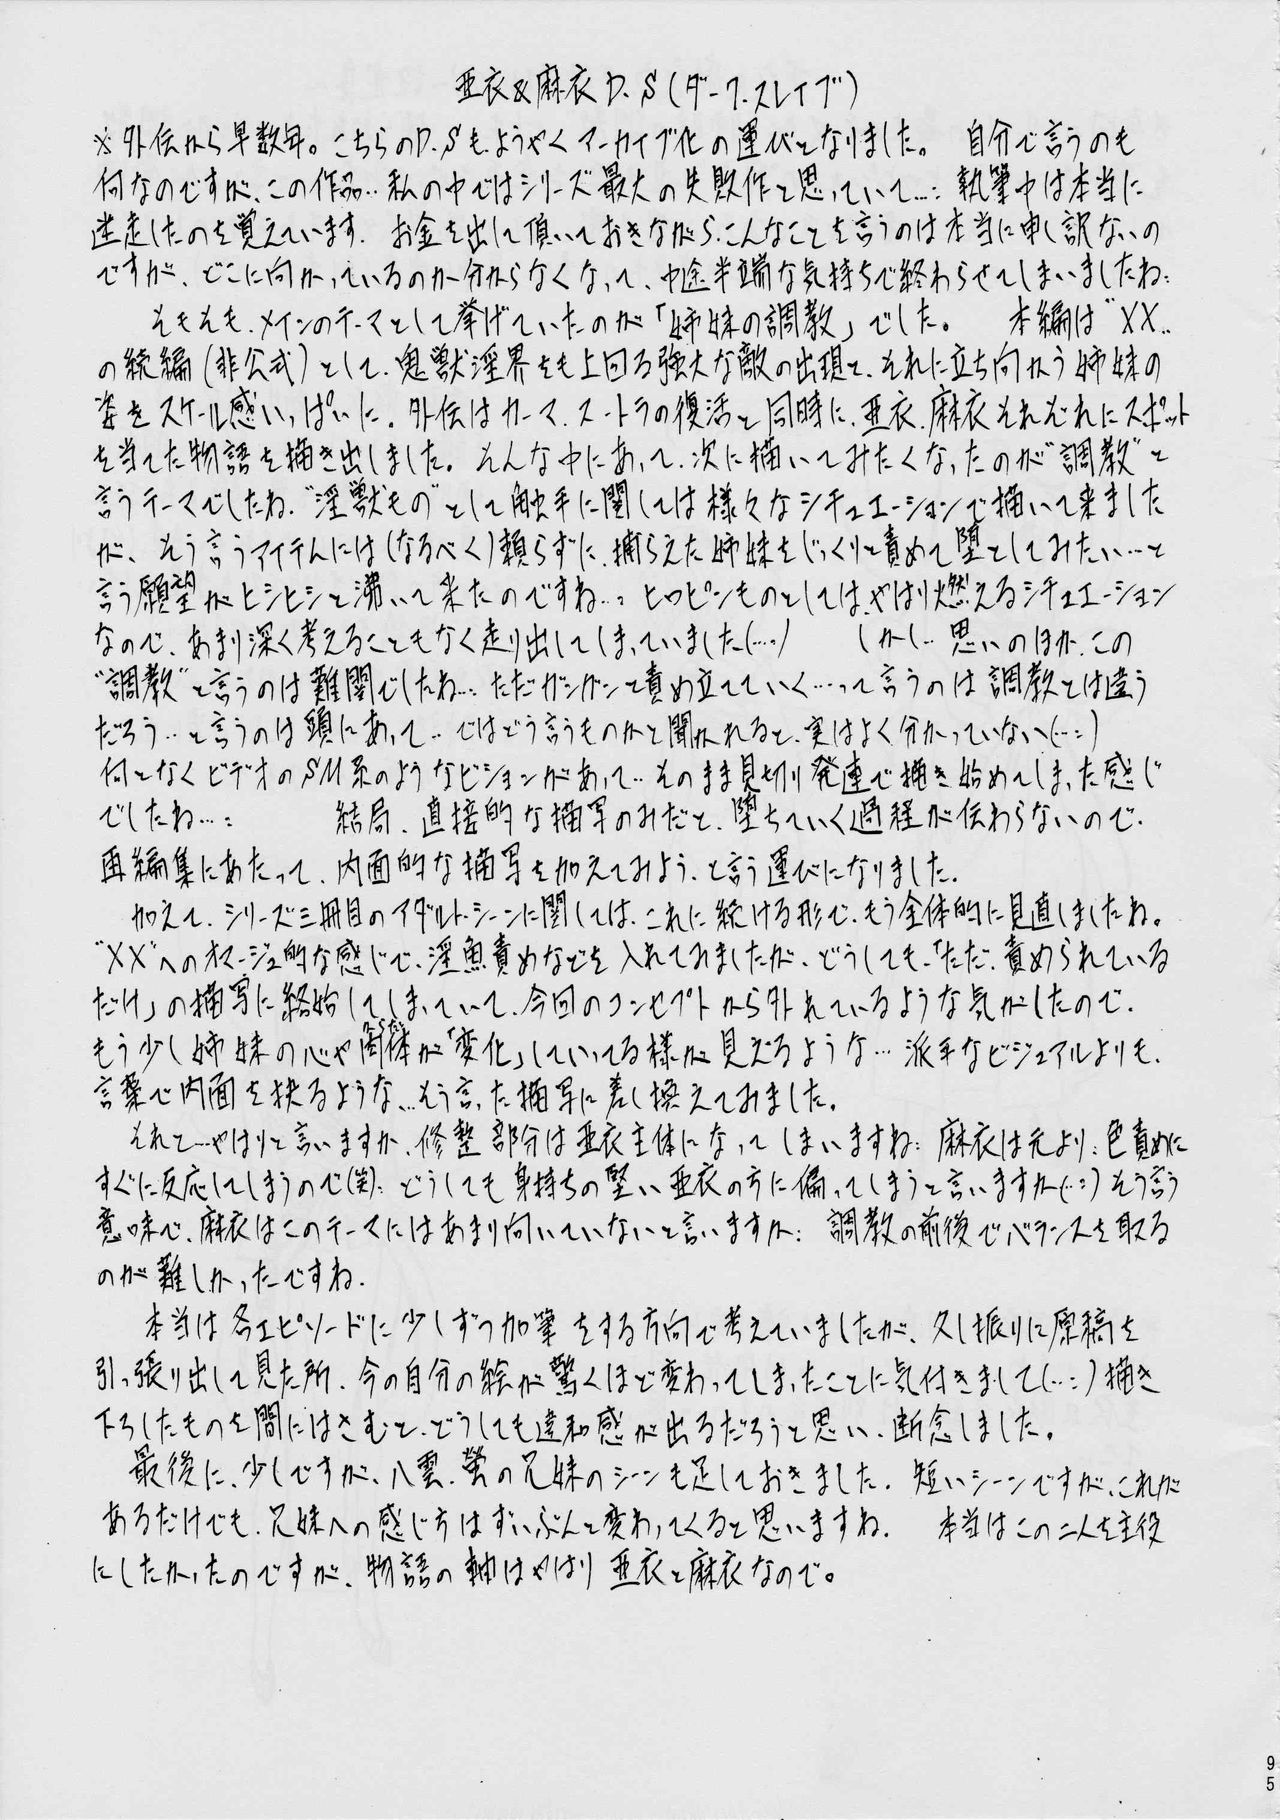 亜衣&麻衣D.S(ダーク.スレイブ)
※外伝から早数年。こちらのD.Sも、ようやくアーカイブ化の運びとなりました。 自分で言うのも
何なのですが、この作品…私の中ではシリーズ最大の失敗作と思っていて…: 執筆中は本当に
迷走したのを覚えています. お金を出して頂いておきながら、こんなことを言うのは本当に申し訳ないの
ですが、どこに向かっているのか分からなくなって、中途半端な気持ちで終わらせてしまいましたね:
そもそも、メインのテーマとして挙げていたのが「姉妹の調教」でした。 本編は"XX..
の続編(非公式)として、鬼獣淫界をも上回る強大な敵の出現と、それに立ち向かう姉妹の
姿をスケール感いっぱいに。外伝はカーマ.スートラの復活と同時に、亜衣.麻衣それぞれにスポット
を当てた物語を描き出しました。そんな中にあって、次に描いてみたくなったのが"調教"と
言うテーマでしたね."淫獣もの"として触手に関しては様々なシチュエーションで描いて来ました
が、そう言うアイテムには(なるべく)頼らずに、捕らえた姉妹をじっくりと責めて堕としてみたい…と
言う願望がヒシヒシと沸いて来たのですね…: ヒロピンものとしては、やはり燃えるシチュエーション
なので、あまり深く考えることもなく走り出してしまっていました(…:) しかし… 思いのほか、この
"調教"と言うのは難関でしたね…: ただガンガンと責め立てていく…って言うのは調教とは違う
だろう…と言うのは頭にあって… ではどう言うものかと聞かれると、実はよく分かっていない(…:)
何となくビデオのSM系のようなビジョンがあって… そのまま見切り発進で描き始めてしまった感じ
でしたね…: 結局、直接的な描写のみだと、堕ちていく過程が伝わらないので、
再編集にあたって、内面的な描写を加えてみよう、と言う運びになりました.
加えて、シリーズ三冊目のアダルト.シーンに関しては、これに続ける形で、もう全体的に見直しましたね。
"XX"へのオマージュ的な感じで、淫魚責めなどを入れてみましたが、どうしても、「ただ、責められている
だけ」の描写に終始してしまっていて、今回のコンセプトから外れているような気がしたので、
もう少し姉妹の心や肉体が「変化」していってる様が見えるような… 派手なビジュアルよりも、
言葉で内面を抉るような…そう言った描写に差し換えてみました。
それと…やはりと言いますか、修整部分は亜衣主体になってしまいますね: 麻衣は元より: 色責めに
すぐに反応してしまうので(笑): どうしても身持ちの堅い亜衣の方に偏ってしまうと言いますか(…:) そう言う
意味で、麻衣はこのテーマにはあまり向いていないと言いますか: 調教の前後でバランスを取る
のが難しかったですね.
本当は各エピソードに少しずつ加筆をする方向で考えていましたが、久し振りに原稿を
引っ張り出して見た所、今の自分の絵が驚くほど変わってしまったことに気付きまして(…:)描き
下ろしたものを間にはさむと、どうしても違和感が出るだろうと思い、断念しました。
最後に、少しですが、八雲.蛍の兄妹のシーンも足しておきました. 短いシーンですが、これが
あるだけでも、兄妹への感じ方はずいぶんと変わってくると思いますね. 本当はこの二人を主役
にしたかったのですが、物語の軸はやはり亜衣と麻衣なので。
95